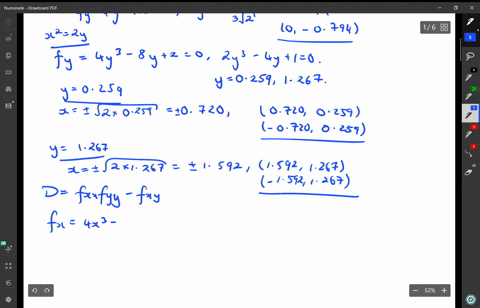 Numerade - Drawboard PDF
1 / 6
3√2
(0, -0.794)
x² = 2y
fy = 4y³ - 8y + 2 = 0, 2y³ - 4y + 1 = 0.
y = 0.259, 1.267.
y = 0.259
x = ±√2 × 0.259 = ±0.720, (0.720, 0.259)
(-0.720, 0.259)
y = 1.267
x = ±√2 × 1.267 = ±1.592, (1.592, 1.267)
(-1.592, 1.267)
D = fxx fyy - fxy
fx = 4x³ -
52%